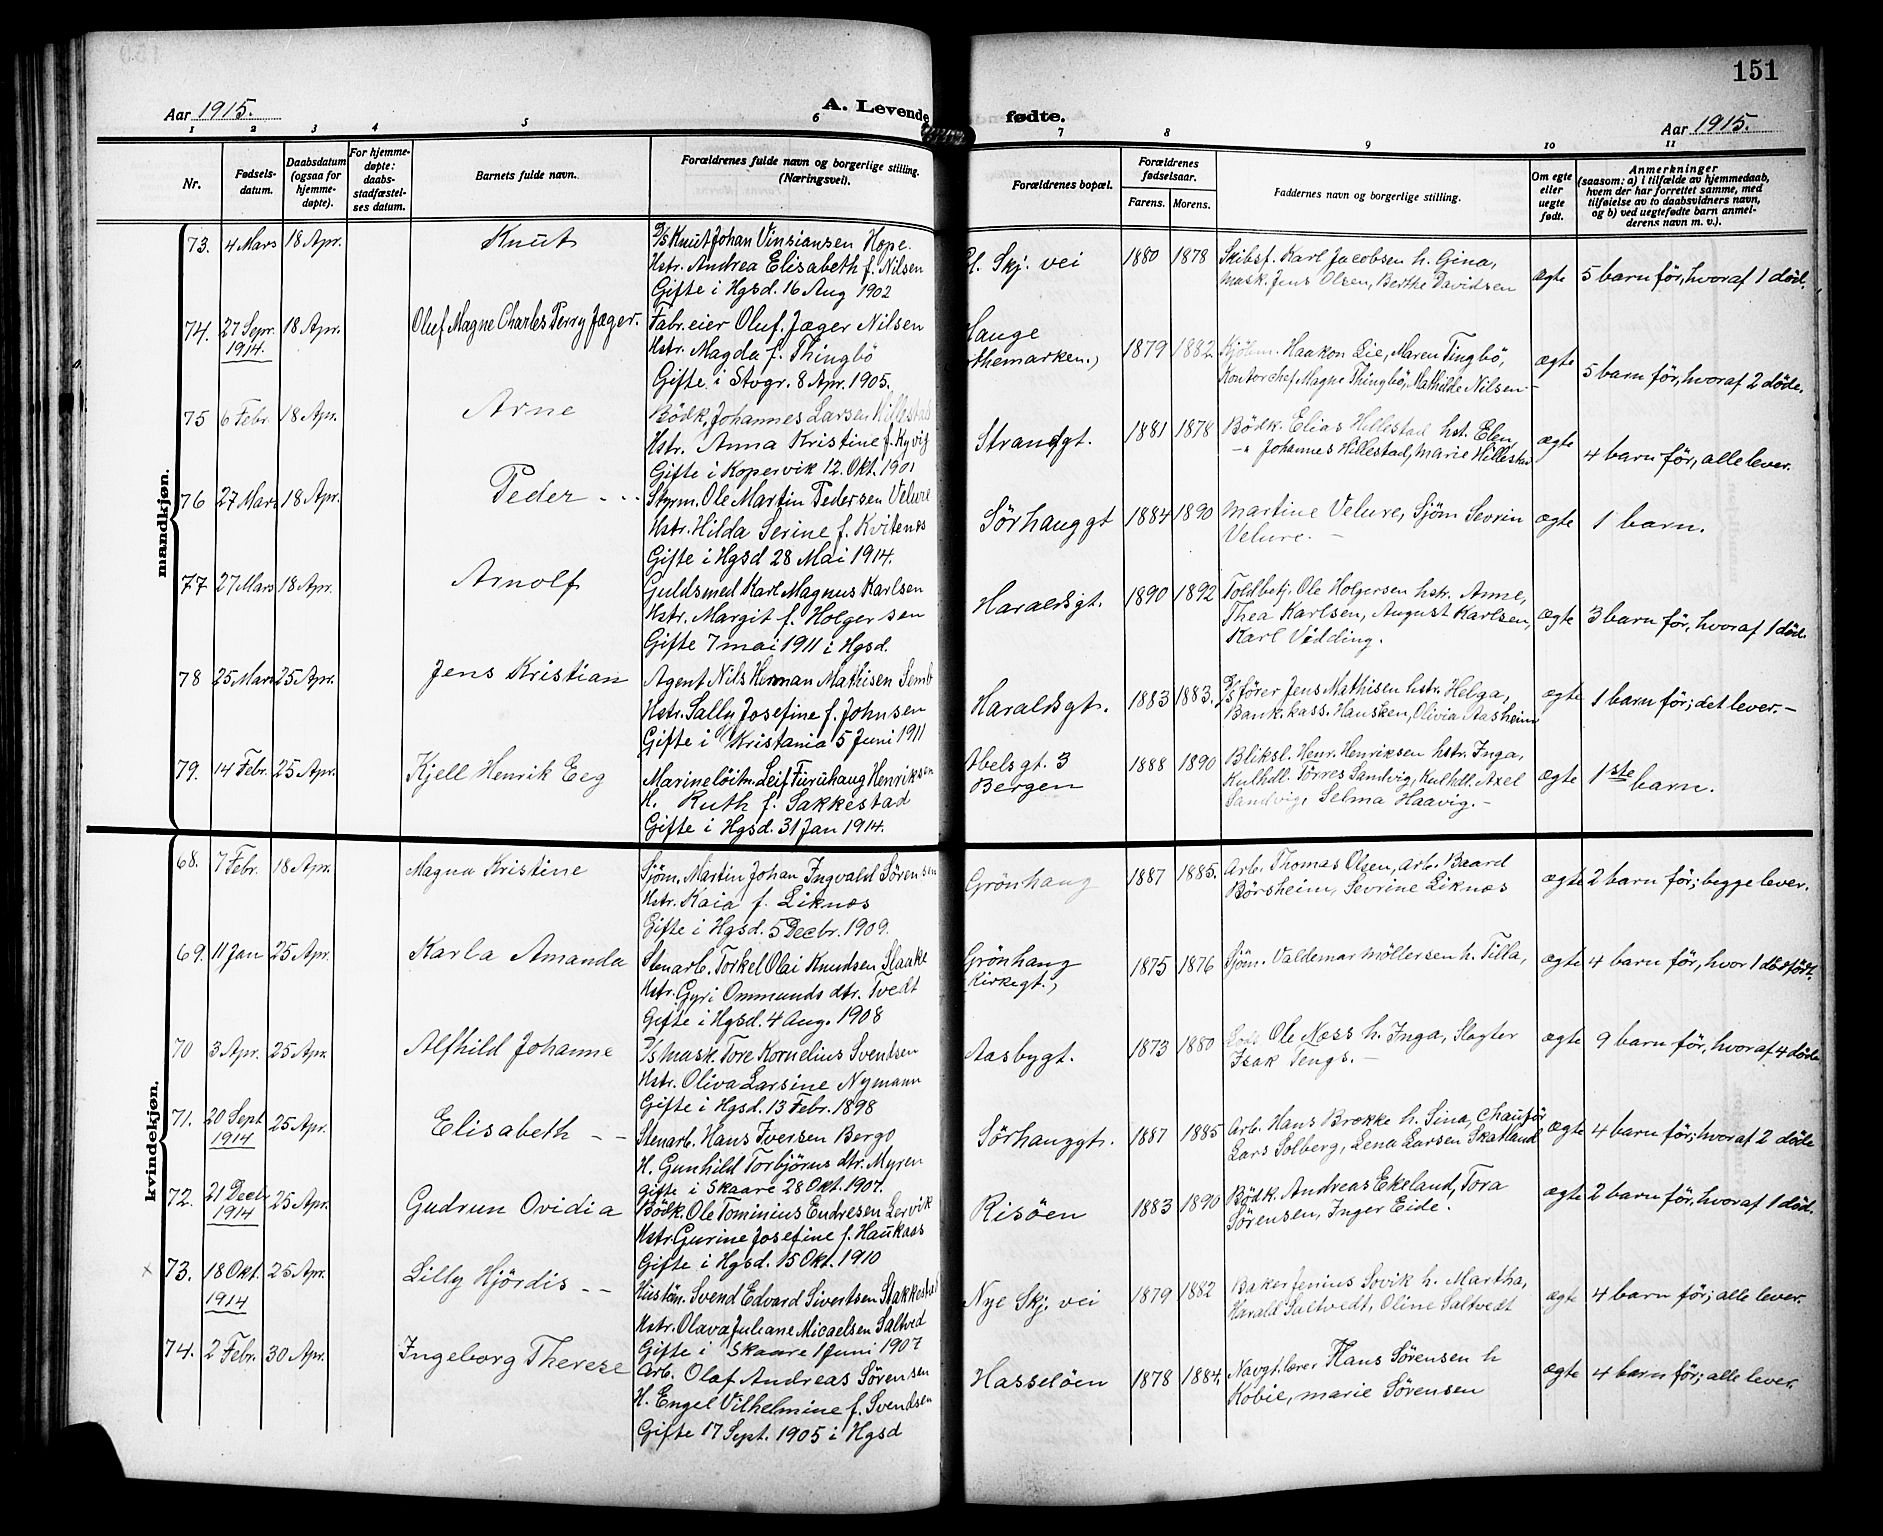 151
Aar 1915. A. Levende fødte. Aar 1915.
1 2 3 4 5 6 7 8 9 10 11
Nr.
Fødsels-
datum.
Daabsdatum
(ogsaa for
hjemme-
døpte).
For hjemme-
døpte:
daabs-
stadfæstel-
ses datum.
Barnets fulde navn.
Forældrenes fulde navn og borgerlige stilling.
(Næringsvei).
Forældrenes bopæl.
Forældrenes
fødselsaar.
Farens. Morens.
Faddernes navn og borgerlige stilling.
Om egte
eller
uegte
født.
Anmerkninger
(saasom: a) i tilfælde av hjemmedaab,
hvem der har forrettet samme, med
tilføielse av to daabsvidners navn,
og b) ved uegtefødte barn anmel-
derens navn m. v.).
mandkjøn.
73. 4 Mars 18 Apr. Knut
D/S Knut Johan Vinsiansen Hope.
Hstr. Andrea Elisabeth f. Nilsen
Gifte i Hgsd. 16 Aug 1902
Gl. Skj. vei 1880 1878
Skibsf. Karl Jacobsen h. Gina,
Mask. Jens Olsen, Berthe Davidsen
ægte 5 barn før, hvoraf 1 død.
74. 27 Sepr. 1914. 18 Apr. Oluf Magne Charles Perry Jæger.
Fabr.eier Oluf Jæger Nilsen
Hstr. Magda f. Thingbö
Gifte i Stvgr. 8 Apr. 1905.
Hauge
1879 1882
Kjöbm. Haakon Lie, Maren Tingbö,
Kontorchef Magne Thingbö, Mathilde Nilsen –
ægte 5 barn før, hvoraf 2 døde.
75 6 Febr. 18 Apr. Arne
Bödk. Johannes Larsen Hillestad
Hstr. Anna Kristine f. Kyvig
Gifte i Kopervik 12. Okt. 1901
Strandgt. 1881 1878
Bödk. Elias Hillestad hst. Elen
–"– Johannes Hillestad, Marie Hillestad
ægte 4 barn før, alle lever.
76 27 Mars 18 Apr. Peder - - -
Styrm. Ole Martin Pedersen Velure
Hstr. Hilda Serine f. Kvitenes
Gifte i Hgsd 28 Mai 1914.
Sörhauggt 1884 1890
Martine Velure, Sjöm Sevrin
Velure. –
ægte 1 barn.
77 27 Mars 18 Apr. Arnolf
Guldsmed Karl Magnus Karlsen
Hstr. Margit f. Holgersen
Gifte 7 mai 1911 i Hgsd.
Haraldsgt. 1890 1892
Toldbetj. Ole Holgersen hstr. Anne,
Thea Karlsen, August Karlsen,
Karl Vidding.
ægte 3 barn før, hvoraf 1 død.
78 25 Mars 25 Apr. Jens Kristian
Agent Nils Herman Mathisen Semb
Hstr. Sally Josefine f. Johnsen
Gifte i Kristania 5 Juni 1911
Haraldsgt. 1883 1883.
D/S fører Jens Mathisen hstr. Helga,
Bank.kass. Hausken, Olivia Aasheim
ægte 1 barn før; det lever. –
79. 14 Febr. 25 Apr. Kjell Henrik Eeg
Marinelöitn. Leif Furuhaug Henriksen
H. Ruth f. Sakkestad
Gifte i Hgsd. 31 Jan 1914.
Abelsgt. 3
Bergen 1888 1890
Bliksl. Henr. Henriksen hstr. Inga,
Kulhdl. Törres Sandvig, Kulhdl. Axel
Sandvig, Selma Haavig. –
ægte 1ste barn.
kvindekjøn.
68. 7 Febr. 18 Apr. Magna Kristine
Sjöm. Martin Johan Ingvald Sörensen
Hstr. Kaia f. Liknes
Gifte i Hgsd. 5 Decbr. 1909.
Grönhaug 1887 1885.
Arb. Thomas Olsen, arb. Baard
Börsheim, Sevrine Liknæs
ægte 2 barn før; begge lever.
69. 11 Jan 25 Apr. Karla Amanda
Stenarb. Torkel Olai Knudsen Slaake
Hstr. Gyri Ommunds dtr. Tvedt
Gifte i Hgsd. 4 Aug. 1908
Grönhaug
Kirkegt., 1875 1876
Sjöm. Valdemar Möllersen h. Tilla,
ægte 4 barn før, hvor 1 dødfødt.
70 3 Apr. 25 Apr. Alfhild Johanne
D/S Mask. Tore Kornelius Svendsen
Hstr. Oliva Larsine Nymann
Gifte i Hgsd. 13 Febr. 1898
Aasbygt. 1873 1880
Ole Næss h. Inga, Slagter
Isak Tengs. –
ægte 9 barn før, hvoraf 4 døde
71. 20 Sept 1914 25 Apr. Elisabeth - -
Stenarb. Hans Iversen Bergo
H. Gunhild Torbjörns dtr. Myren
Gifte i Skaare 28 Okt. 1907.
Sörhauggt. 1887 1885
Arb. Hans Brokke h. Sina, Chauför
Lars Solberg, Lena Larsen Skatland
ægte 4 barn før; hvoraf 2 døde
72. 21 Decbr. 1914 25 Apr. Gudrun Ovidia
Bödk. Ole Tominius Endresen Lervik
Hstr. Gurine Josefine f. Haukaas
Gifte i Hgsd. 15 Okt. 1910
Risöen 1883 1890
Bödk. Andreas Ekeland, Tora
Sörensen, Inger Eide.
ægte 2 barn før, hvoraf 1 død.
x 73. 18 Okt. 1914 25 Apr. Lilly Hjördis - -
Hustöm. Svend Edvard Sivertsen Stakkestad
Hstr. Olava Juliane Micaelsen Saltved
Gifte i Skaare 1 Juni 1907
Nye Skj. vei 1879 1882
Baker Jenius Sovik h. Martha,
Harald Saltvedt, Oline Saltvedt
ægte 4 barn før; alle lever.
74. 2 Febr. 30 Apr. Ingeborg Therese
Arb. Olaf Andreas Sörensen
H. Engel Vilhelmine f. Svendsen
Gifte 17 Sept. 1905 i Hgsd
Hasselöen 1878 1884.
Navgt.lærer Hans Sörensen h
Kobie, Marie Sörensen
ægte 4 barn før; alle lever.